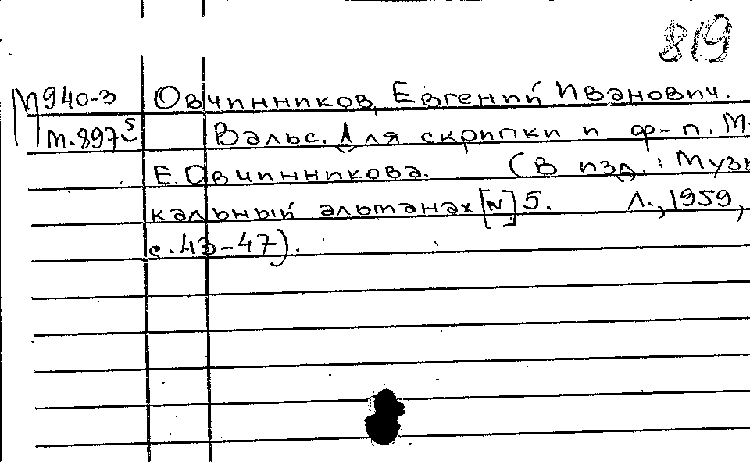 819
М940-3 Овчинников, Евгений Иванович.
т.897 5 Вальс. Для скрипки и ф-п. М.
Е.Овчинникова. (В изд.: Музы
кальный альманах [N] 5. Л., 1959,
с.43-47).